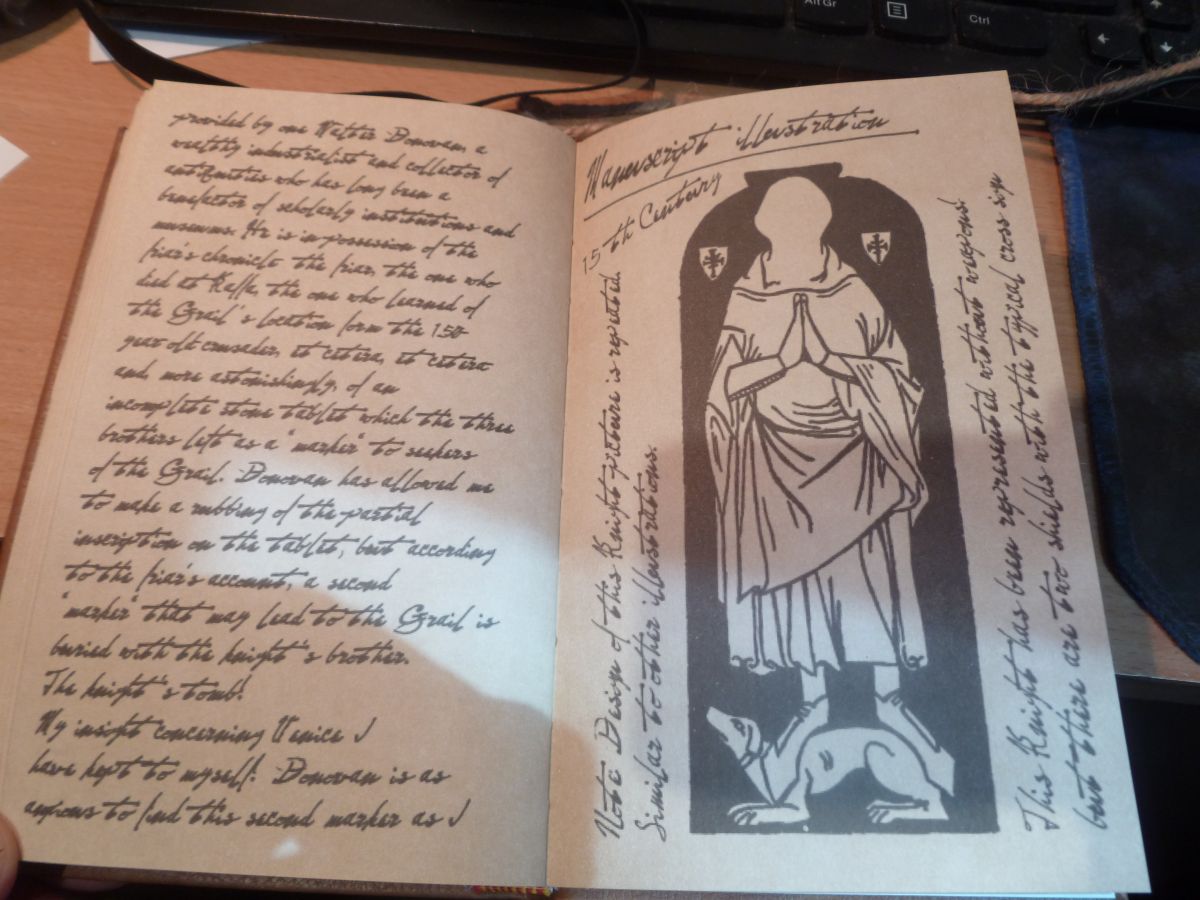 provided by one Walter Donovan, a
wealthy industrialist and collector of
antiquities who has long been a
benefactor of scholarly institutions and
museums. He is in possession of the
friar's chronicle the friar, the one who
died at Kaffa, the one who learned of
the Grail's location form the 150
year olt crusader, et cetera, et cetera
and, more astonishingly, of an
incomplete stone tablet which the three
brothers left as a "marker" to seekers
of the Grail. Donovan has allowed me
to make a rubbing of the partial
inscription on the tablet, but according
to the friar's account, a second
"marker" that may lead to the Grail is
buried with the knight's brother.
The knight's tomb!
My insight concerning Venice I
have kept to myself. Donovan is as
anxious to find this second marker as I
Manuscript illustration
15 th Century
Note Design of this Knight picture is repeated.
Similar to other illustrations.
This Knight has been represented without weapons.
but there are two shields with the typical cross sign
Alt Gr
Ctrl